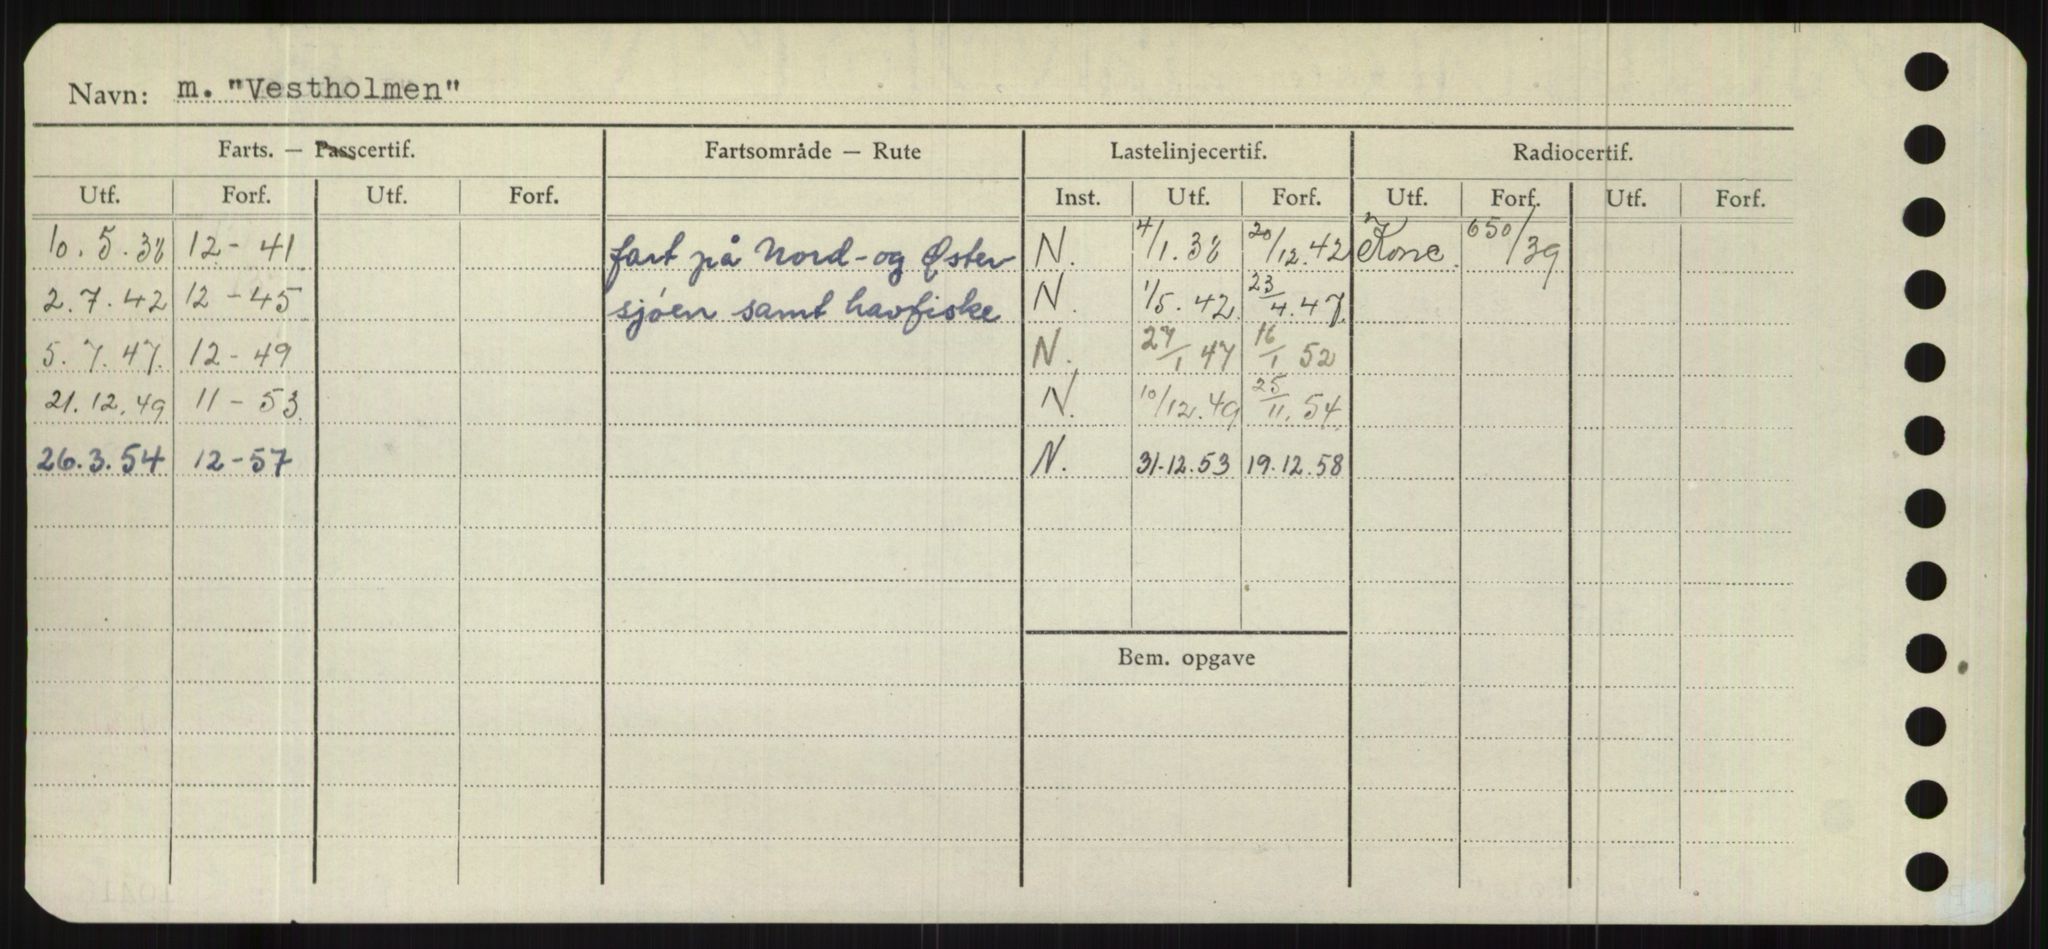 Navn: m. "Vestholmen"
Farts. — Passcertif. Fartsområde — Rute Lastelinjecertif. Radiocertif.
Utf. Forf. Utf. Forf. Inst. Utf. Forf. Utf. Forf. Utf. Forf.
10. 5. 38 12 - 41 fart på Nord- og Øster N. 4/1. 38 20/12. 42 650/39
2. 7. 42 12 - 45 sjøen samt havfiske N. 1/5. 42 23/4. 47
5. 7. 47. 12 - 49 N. 27/1 47 16/1 52
21. 12. 49 11 - 53 N. 10/12. 49 25/11. 54
26. 3. 54 12 - 57 N. 31-12. 53 19. 12. 58
Bem. opgave